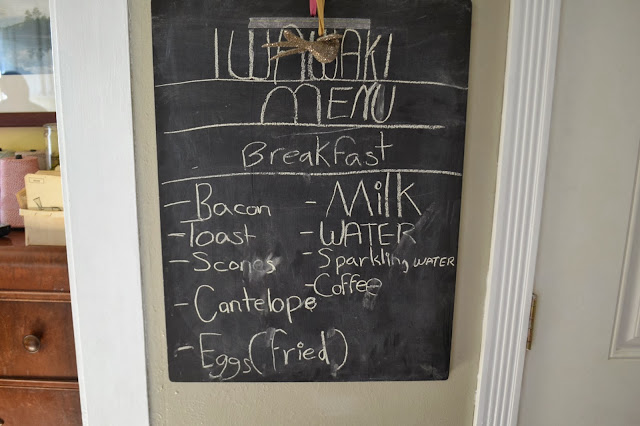 IWAWAKI
MENU
Breakfast
- Bacon
- Toast
- Scones
- Cantelope
- Eggs (fried)
- Milk
- WATER
- Sparkling WATER
- Coffee